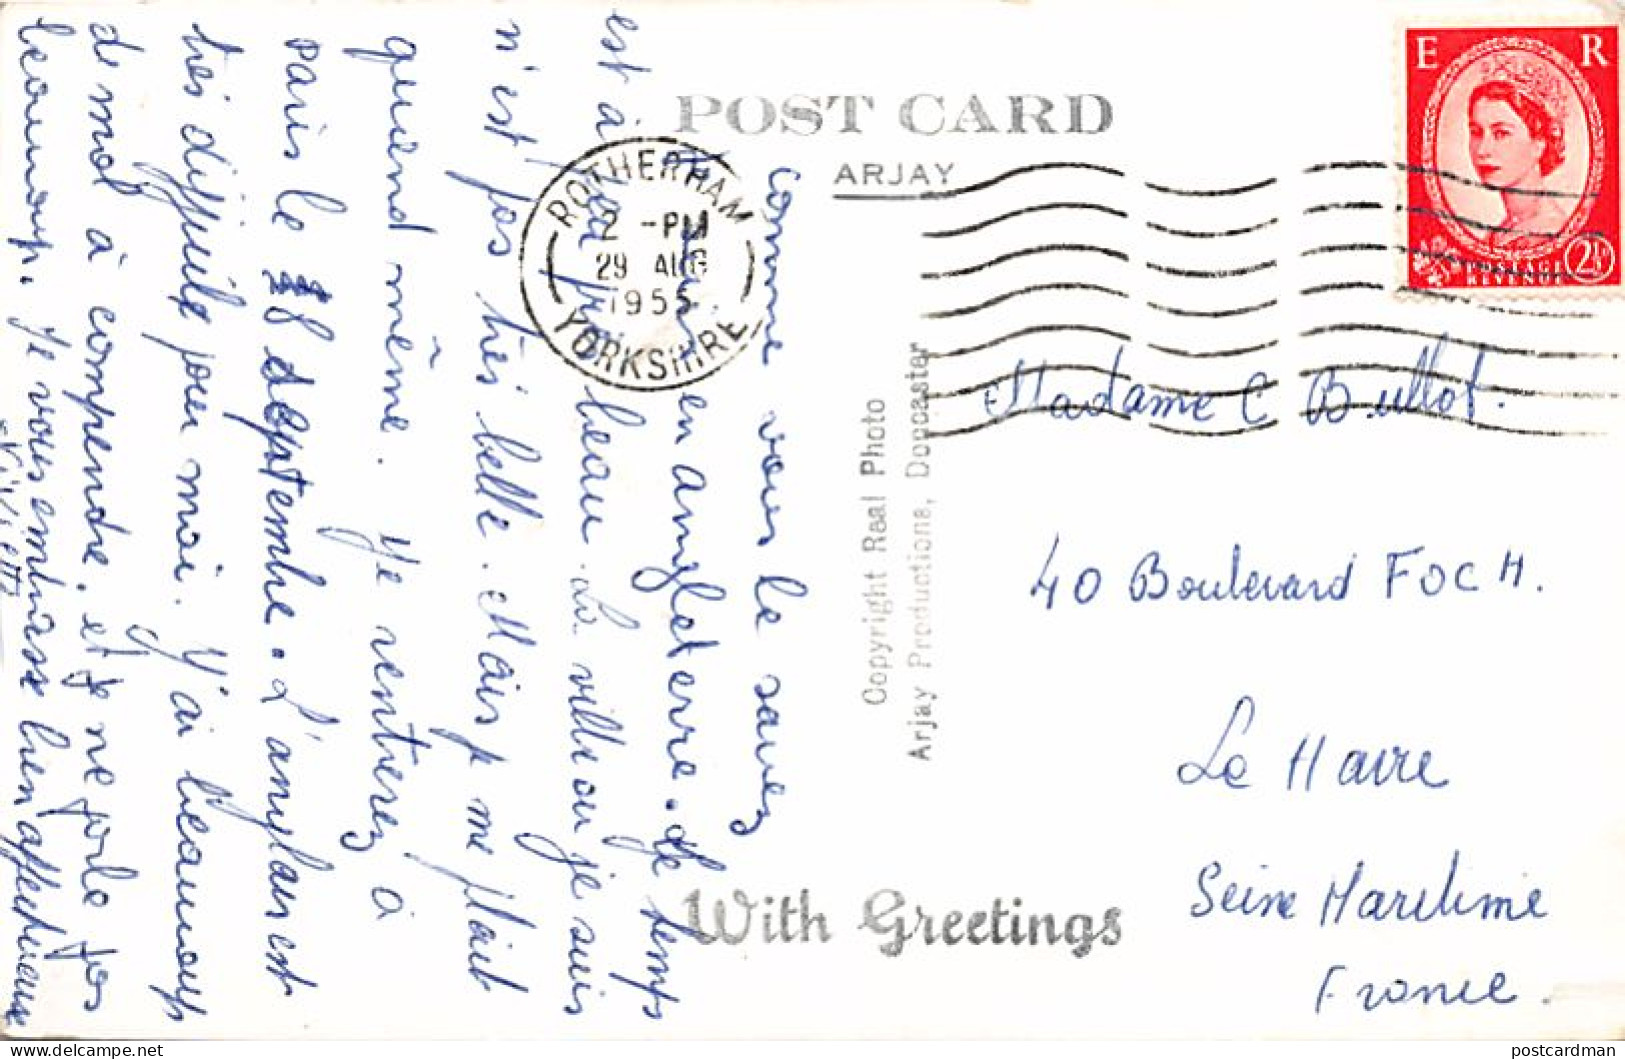 POST CARD
ARJAY
E R
POSTAGE
REVENUE
2½D
ROTHERHAM
2 - PM
29 AUG
1955
YORKSHIRE
Comme vous le savez
je suis en angleterre. Le temps
est à peu près beau. La ville ou je suis
n'est pas très belle. Mais je me plait
quend même. Je rentrerez à
paris le 8 septembre. L'anglais est
très difficile pour moi. J'ai beaucoup
de mal à comprendre. et je ne parle pas
beaucoup. Je vous embrasse bien affectueuse
Copyright Real Photo
Arjay Productions, Doncaster
Madame C Bullot.
40 Boulevard FOCH.
Le Havre
Seine Maritime
France.
With Greetings
postcardman